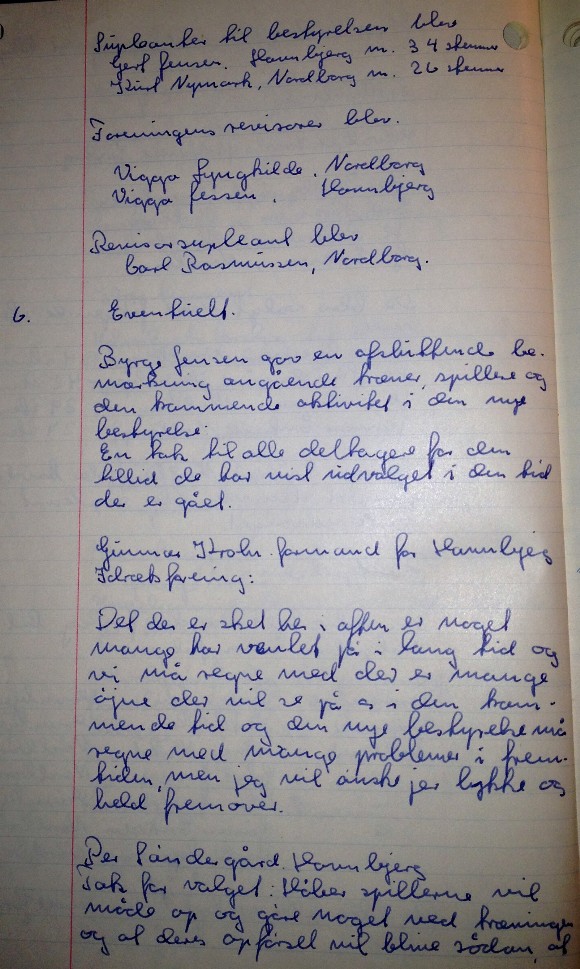 Supleanter til bestyrelsen blev
Gert Jensen. Havnbjerg m. 34 stemmer
Kurt Nymark, Nordborg m. 26 stemmer
Foreningens revisorer blev.
Viggo Lyngkilde, Nordborg
Viggo Jessen, Havnbjerg
Revisorsupleant blev
Carl Rasmussen, Nordborg.
6. Eventuelt.
Byrge Jensen gav en afsluttende be-
mærkning angående træner, spillere og
den kommende aktivitet i den nye
bestyrelse.
En tak til alle deltagere for den
tillid de har vist udvalget i den tid
der er gået.
Gunnar Krohn formand for Havnbjerg
Idrætsforening:
Det der er sket her i aften er noget
mange har ventet på i lang tid og
vi må regne med der er mange
øjne der vil se på os i den kom-
mende tid og den nye bestyrelse må
regne med mange problemer i frem-
tiden, men jeg vil ønske jer lykke og
held fremover.
Per Søndergård. Havnbjerg
Tak for valget: Håber spillerne vil
møde op og gøre noget ved træningen
og at deres opførsel vil blive sådan, at